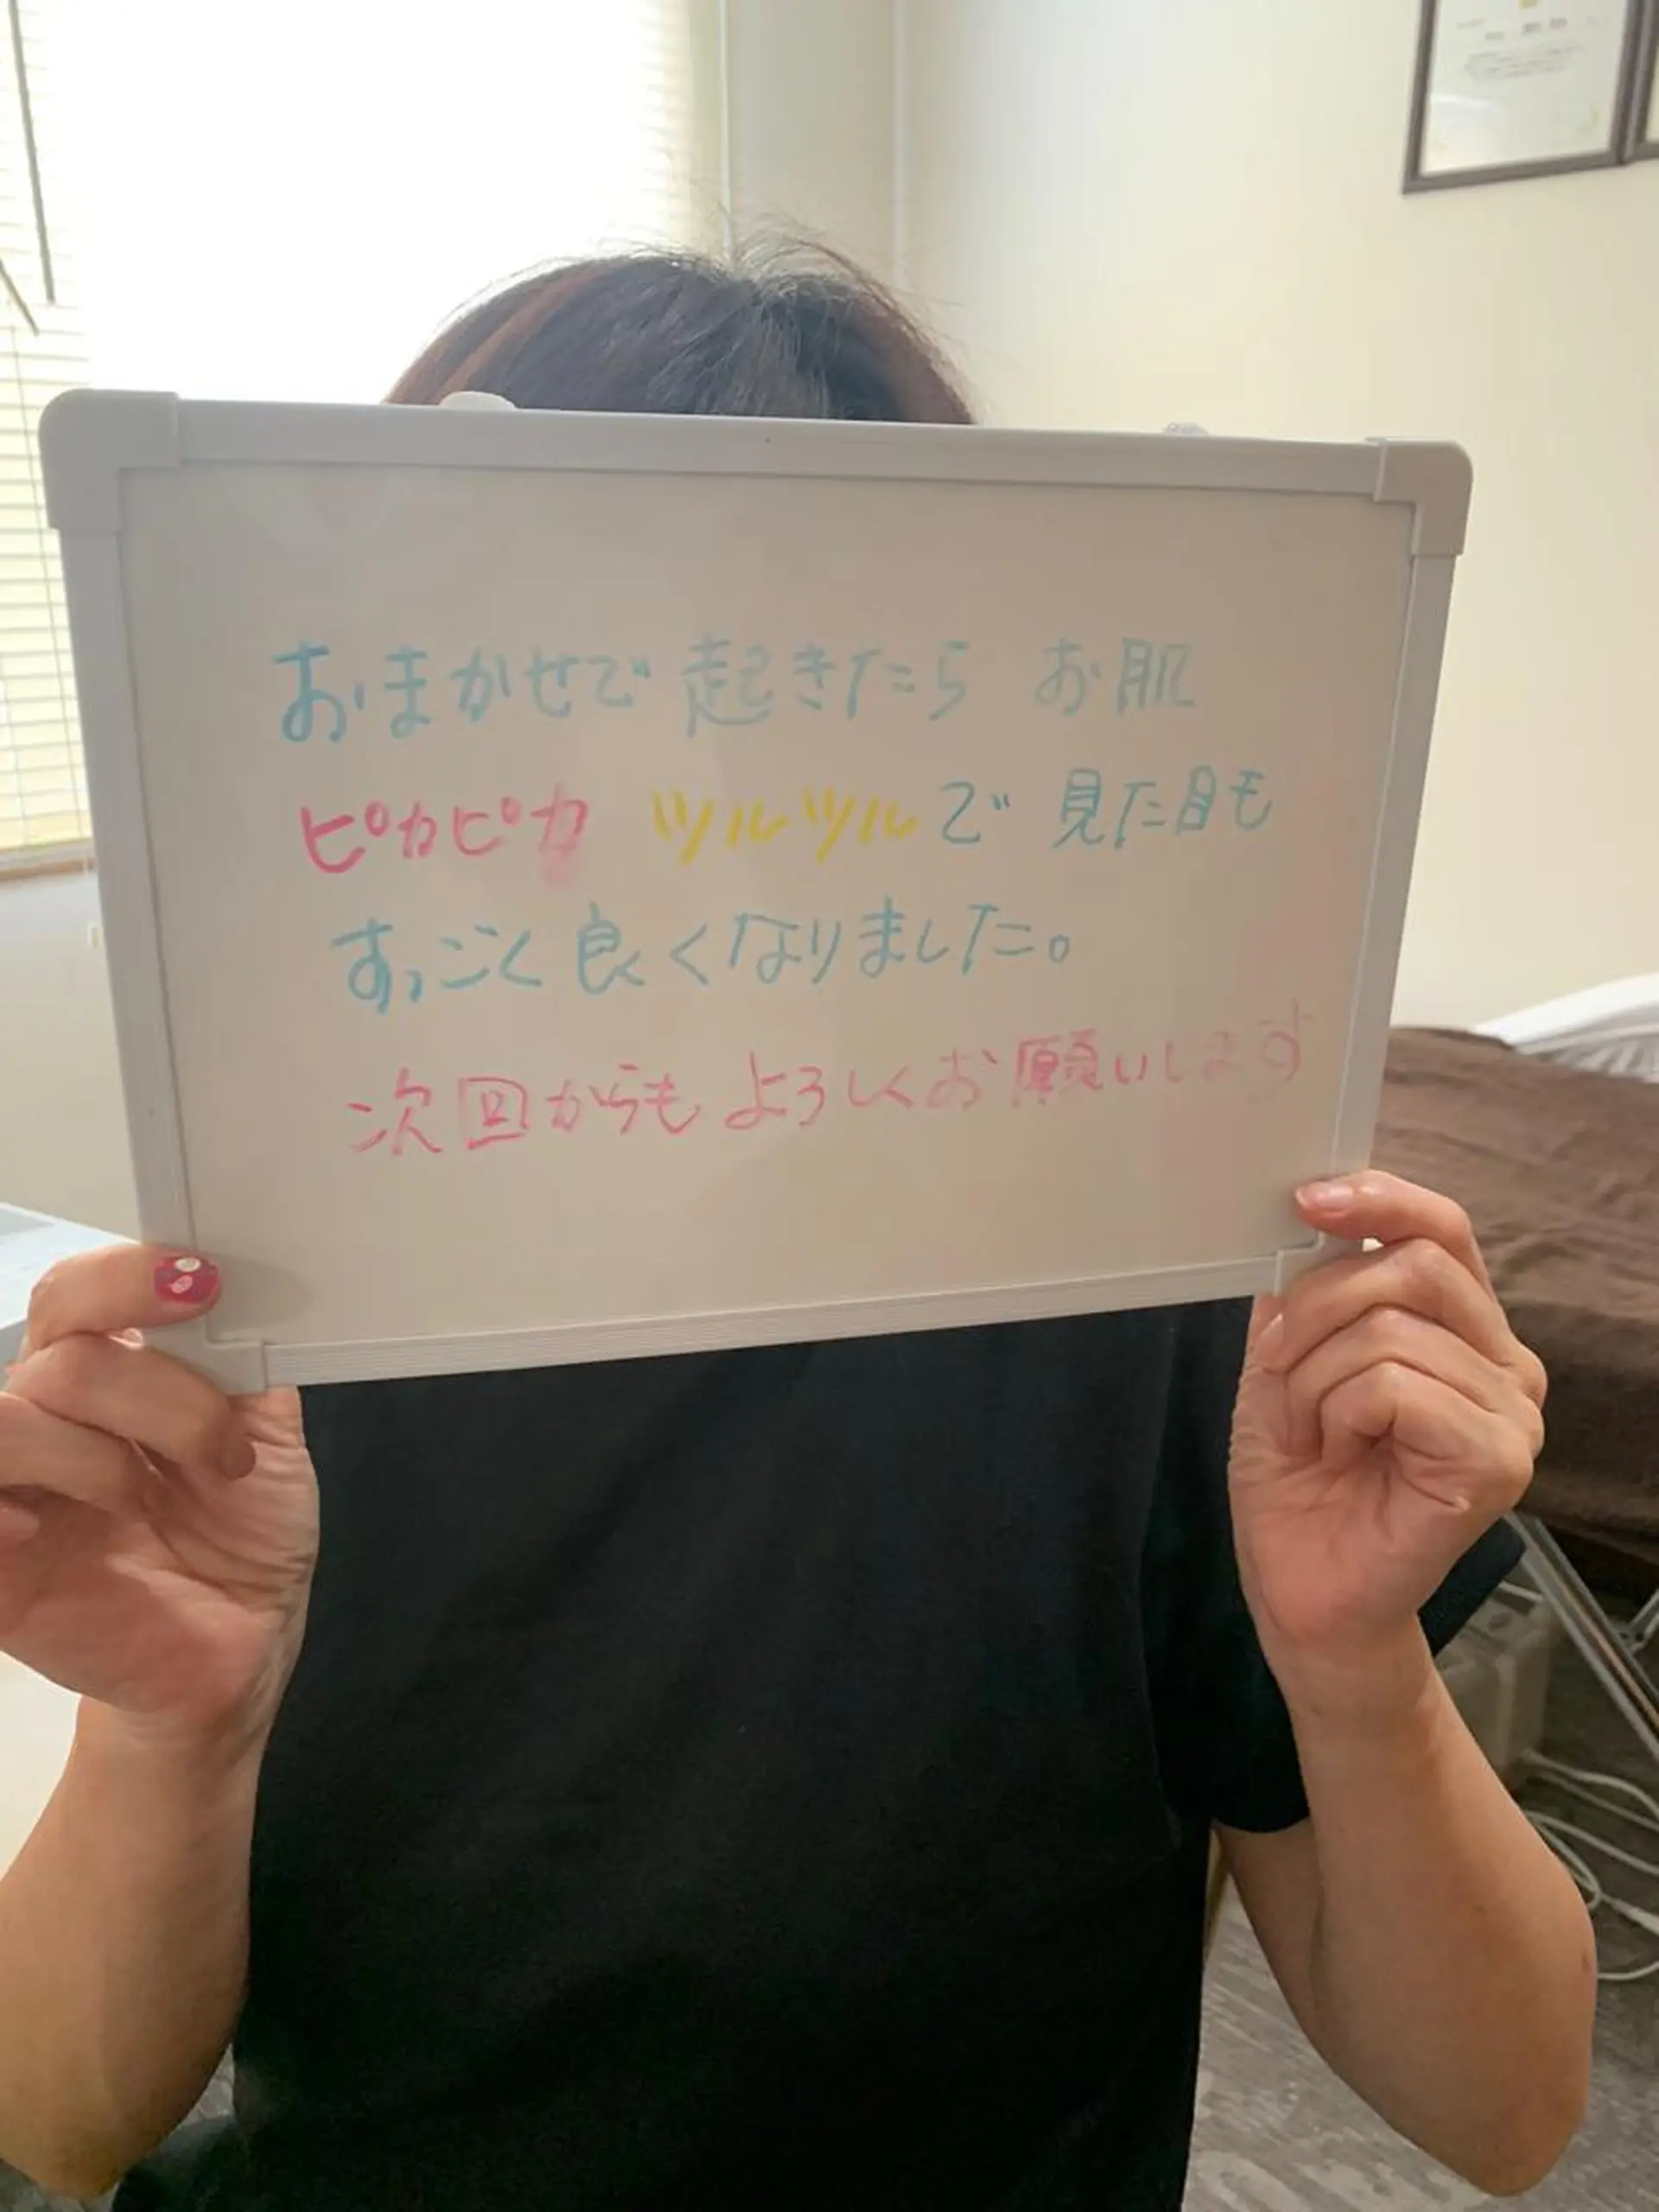 おまかせで起きたら お肌
ピカピカ ツルツルで 見た目も
すっごく良くなりました。
次回からも よろしくお願いします